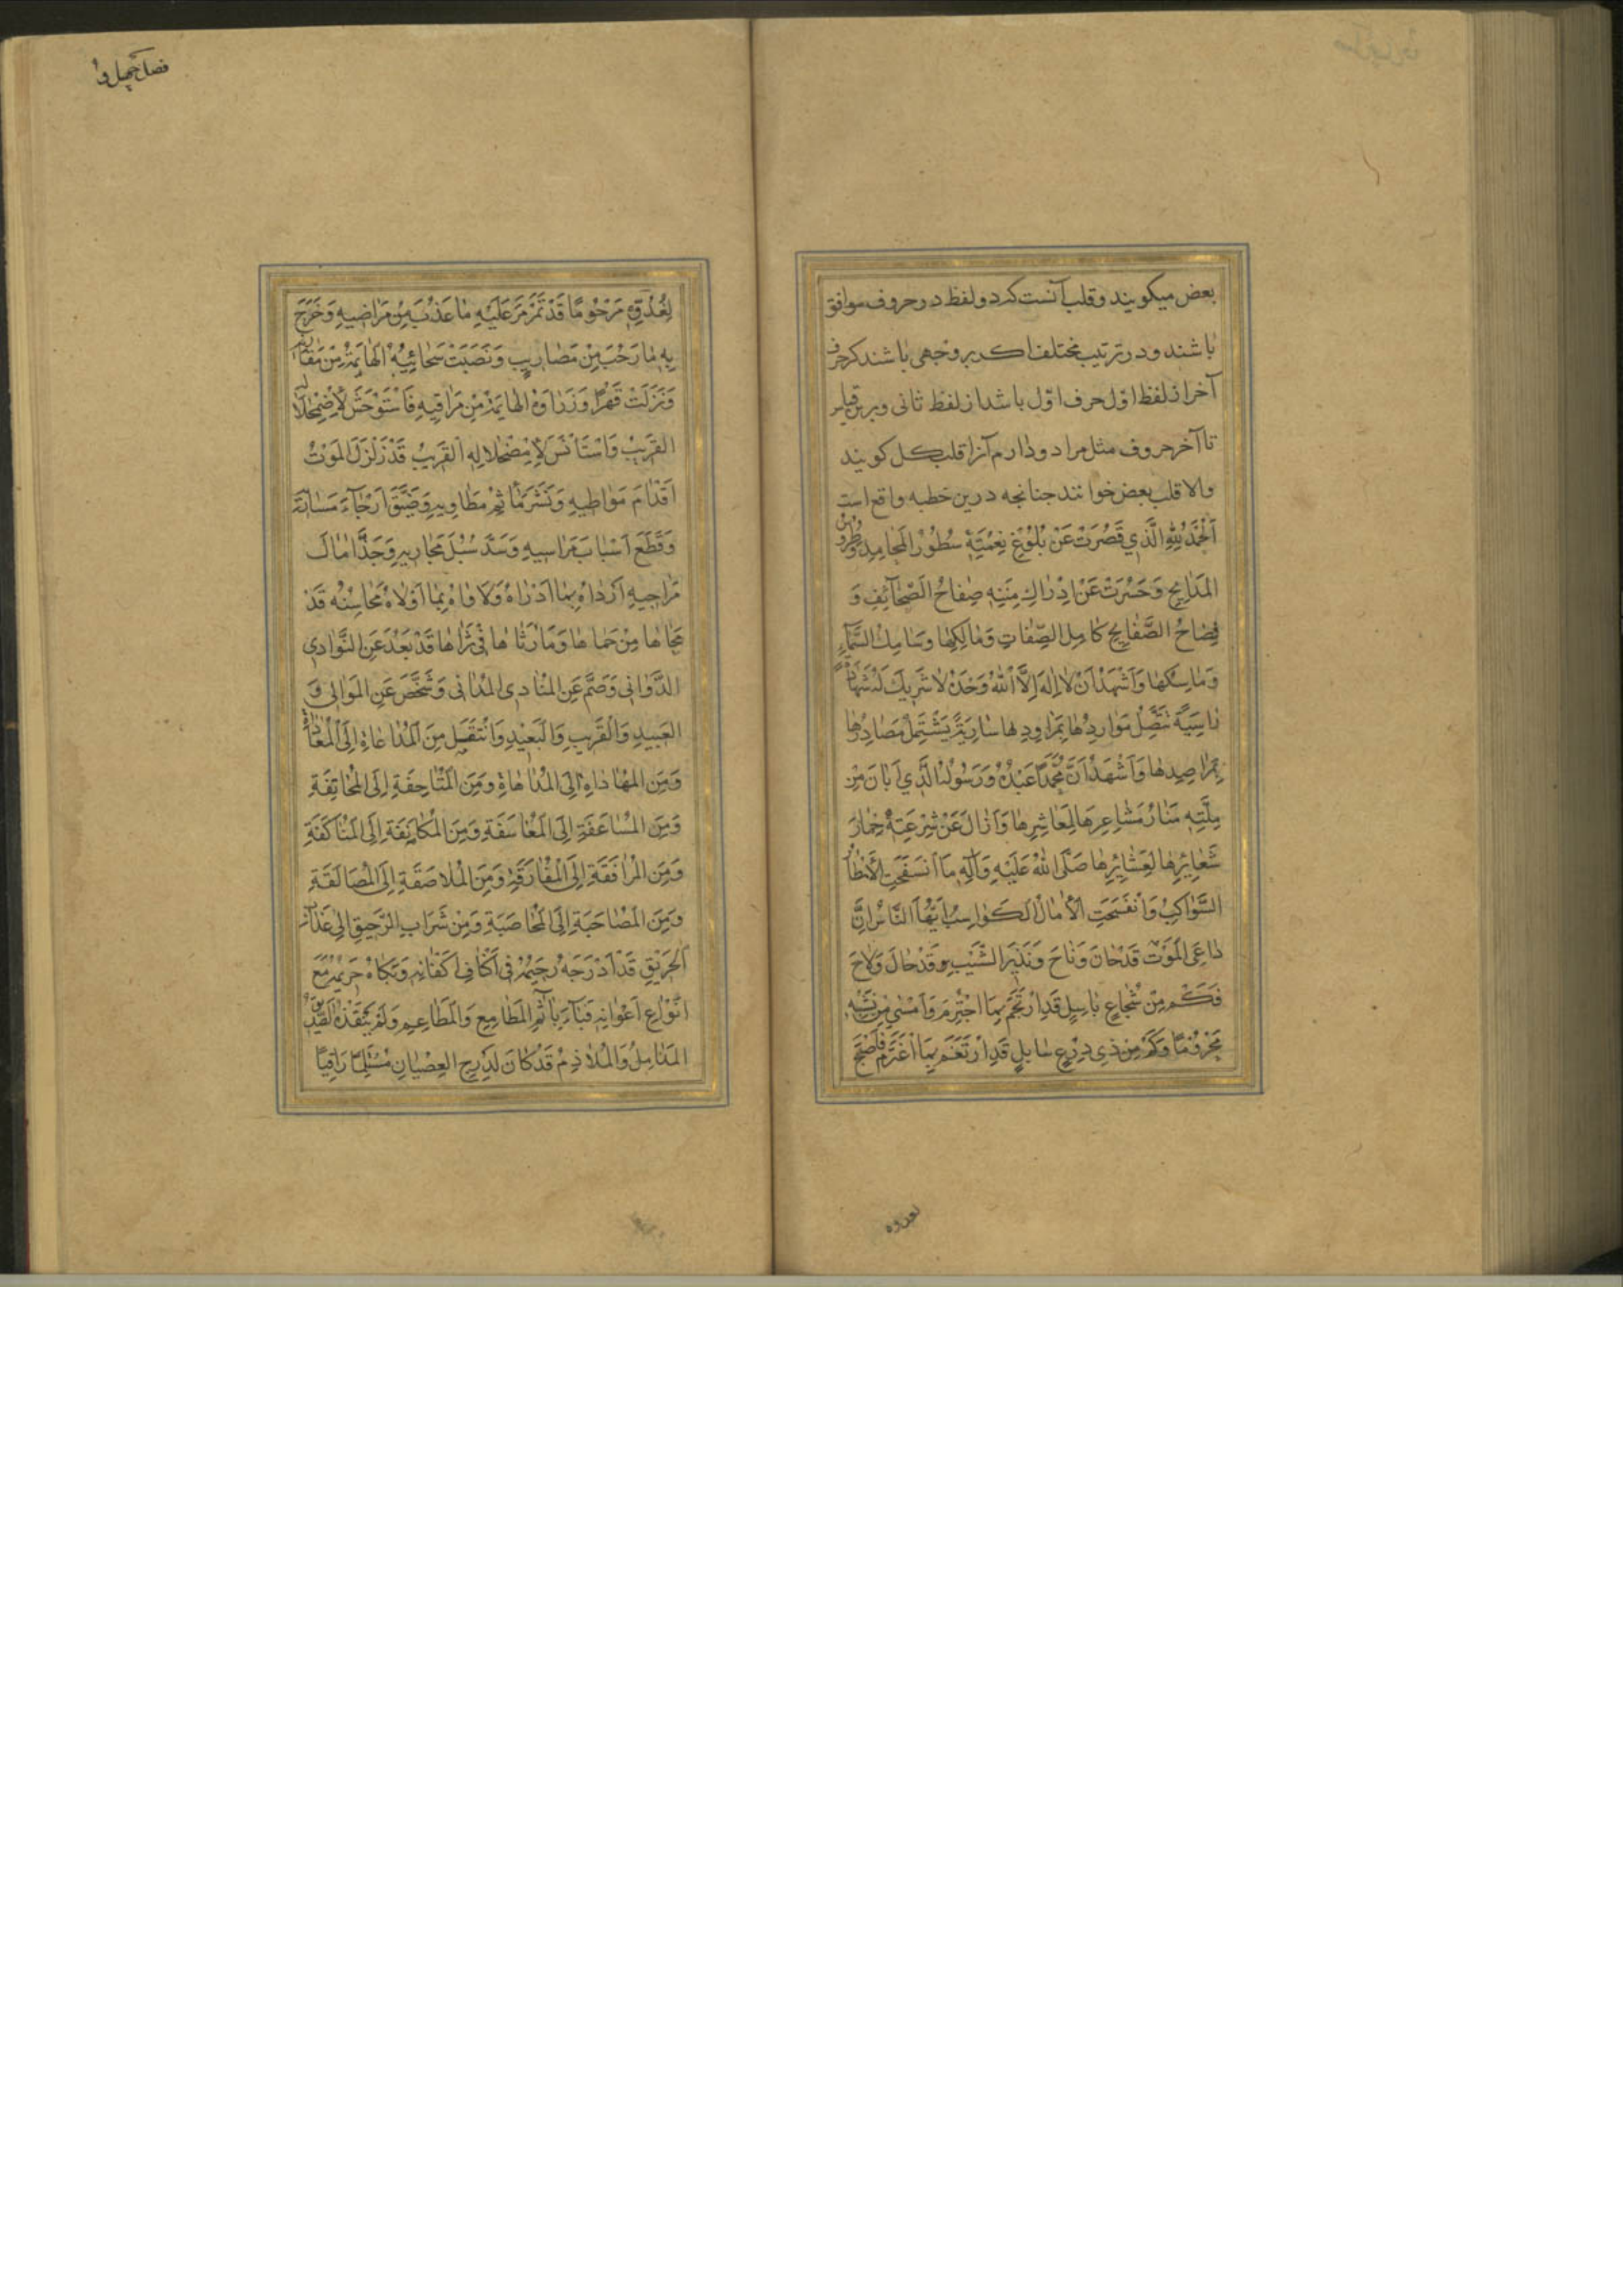 بعض میکویند و قلب آنست که دو لفظ در حروف موافق
باشند و در ترتیب مختلف اکر بر وجهی باشند که حرف
آخر از لفظ اوّل حرف اوّل باشد از لفظ ثانی و برین قیاس
تا آخر حروف مثل مراد و دارم آنرا قلب کل کویند
والا قلب بعض خوانند جنانجه درین خطبه واقع است
اَلْحَمْدُ لِلّٰهِ الَّذِي قَصُرَتْ عَنْ بُلُوْغِ نِعْمَتِهٖ سُطُوْرُ الْمَحَامِدِ وَطُرُوْسُ
المَدَايِحِ وَحَسُرَتْ عَنْ اِدْرَاكِ مِنَنِهٖ صِفَاحُ الصَّحَآئِفِ وَ
فِصَاحُ الصَّفَايِحِ كَامِلِ الصِّفَاتِ وَمَالِكِهَا وسَامِكِ السَّمَآءِ
وَمَاسِكِهَا وَاَشْهَدُ اَنْ لَا اِلٰهَ اِلَّا اللّٰهُ وَحْدَهُ لَا شَرِيكَ لَهُ شَهَادَةً
تَتَّصِلُ مَوَارِدُهَا بِمَرَاوِدِهَا سَارِيَةً يَشْتَمِلُ مَصَادِرُهَا
بِمَرَاصِدِهَا وَاَشْهَدُ اَنَّ مُحَمَّدًا عَبْدُهُ وَرَسُولُهُ الَّذِي اَبَانَ مِنْ
مِلَّتِهٖ مَنَارَ مَشَاعِرِهَا لِمَعَاشِرِهَا وَاَزَالَ عَنْ شِرْعَتِهٖ خِمَارَ
شَعَائِرِهَا لِعَشَائِرِهَا صَلَّى اللّٰهُ عَلَيْهِ وَآلِهٖ مَا انسَفَحَتِ الْاَمْطَارُ
السَّوَاكِبُ وَانْفَسَحَتِ الْاٰمَالُ الكَوَاسِبُ اَيُّهَا النَّاسُ اِنَّ
دَاعِىَ المَوْتِ قَدْ حَانَ وَنَاحَ وَنَذِيرَ الشَّيْبِ قَدْ حَالَ وَلَاحَ
فَكَمْ مِنْ شُجَاعٍ بَاسِلٍ قَدِ ارْتَجَمَ بِمَا اجْتَرَمَ وَاَمْسٰى مِنْ
وَكَمْ مِنْ ذِى دِرْعٍ سَابِلٍ قَدِ ارْتَغَمَ بِمَا اغْتَرَمَ فَاَصْبَحَ
مَرْحُومًا قَدْ تَمَرْمَرَ عَلَيْهِ مَا عَذُبَ مِنْ مَرَاضِيهِ وَخَرَجَ
بِهٖ مَا رَحُبَ مِنْ مَضَارِبِهٖ وَنَضَبَتْ سَحَائِبُهُ الْهَايِمَةُ مِنْ
وَنَزَلَتْ قَهْرًا مِنْ مَرَاقِيهِ فَاسْتَوْحَشَ لِاِضْمِحْلَالِ
القَرِيبُ وَاسْتَأْنَسَ لِاِمْضِحْلَالِهِ القَرِيبُ قَدْ زَلْزَلَ الْمَوْتُ
اَقْدَامَ مَوَاطِيهِ وَنَشَرَ مَا ثُمَّ مَطَاوِيهِ وَضَيَّقَ اَرْجَاءَ
وَقَطَعَ اَسْبَابَ مَرَاسِيهِ وَسَدَّ سُبُلَ مَجَارِيهِ وَجَدَّ اٰمَالَ
مَرَاجِيهِ اَرْدَاهُ بِمَا اَدْرَاهُ وَلَافَاهُ بِمَا اَوْلَاهُ مَحَاسِنُهُ قَدْ
مَحَاهَا مِنْ حَمَاهَا وَمَا رَثَاهَا فِى ثَرَاهَا قَدْ بَعُدَ عَنِ النَّوَادِى
الدَّوَانِى وَصَمَّ عَنِ المُنَادِى المُدَانِى وَشَخَّصَ عَنِ المَوَالِى وَ
العَبِيدِ وَالقَرِيبِ وَالْبَعِيْدِ وَانْتَقَلَ مِنَ المُدَاعَاةِ اِلَى الْمُعَادَاةِ
وَمِنَ المُهَادَاةِ اِلَى الْمُدَاهَاةِ وَمِنَ اِلَى
وَمِنَ المُسَاعَفَةِ اِلَى المُعَاسَفَةِ وَمِنَ المُكَانَفَةِ اِلَى المُنَاكَفَةِ
وَمِنَ الْمُرَافَقَةِ اِلَى الْمُفَارَقَةِ وَمِنَ الْمُلَاصَقَةِ اِلَى الْمُصَالَقَةِ
وَمِنَ المُصَاحَبَةِ اِلَى المُحَاصَبَةِ وَمِنْ شَرَابِ الرَّحِيقِ اِلٰى عَذَابِ
الْحَرِيْقِ قَدْ اَدْرَجَهُ رَحِيْمُهُ فِى اَكْنَافِ اَكْفَانِهٖ وَبَكَاهُ حَرِيْمُهُ مَعَ
اَنْوَاعِ اَعْوَانِهٖ فَبَاءَ بِاٰثَمِ المَطَامِعِ وَالْمَطَاعِمِ وَلَمْ
قَدْ كَانَ لِمَدَارِجِ العِصْيَانِ رَاقِيًا